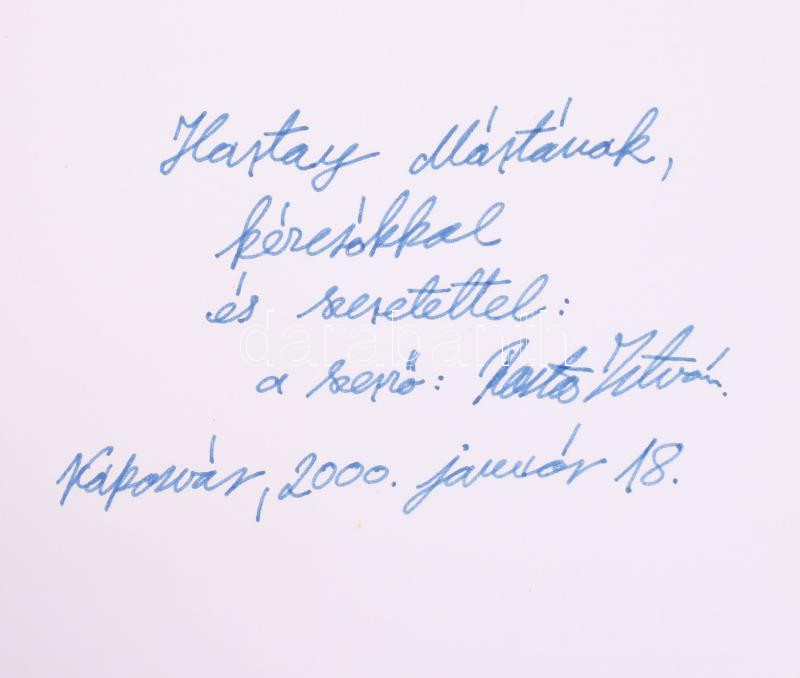 Hartay Mártának,
kézcsókkal
és szeretettel:
darabanth
a szerző: István.
Kaposvár, 2000. január 18.